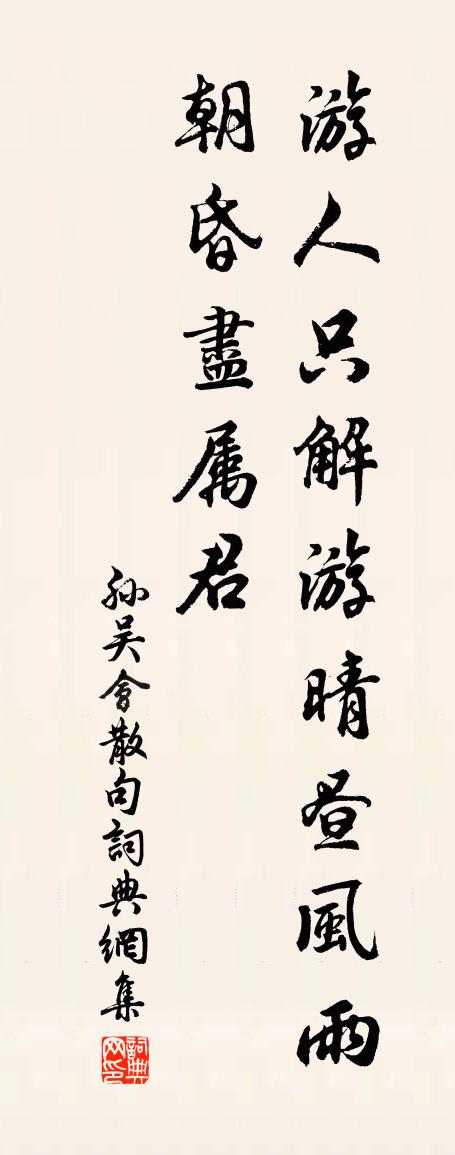 游人只解游晴昼風雨
朝昏盡属君
孫吴會散句詞典網集
詞典网印